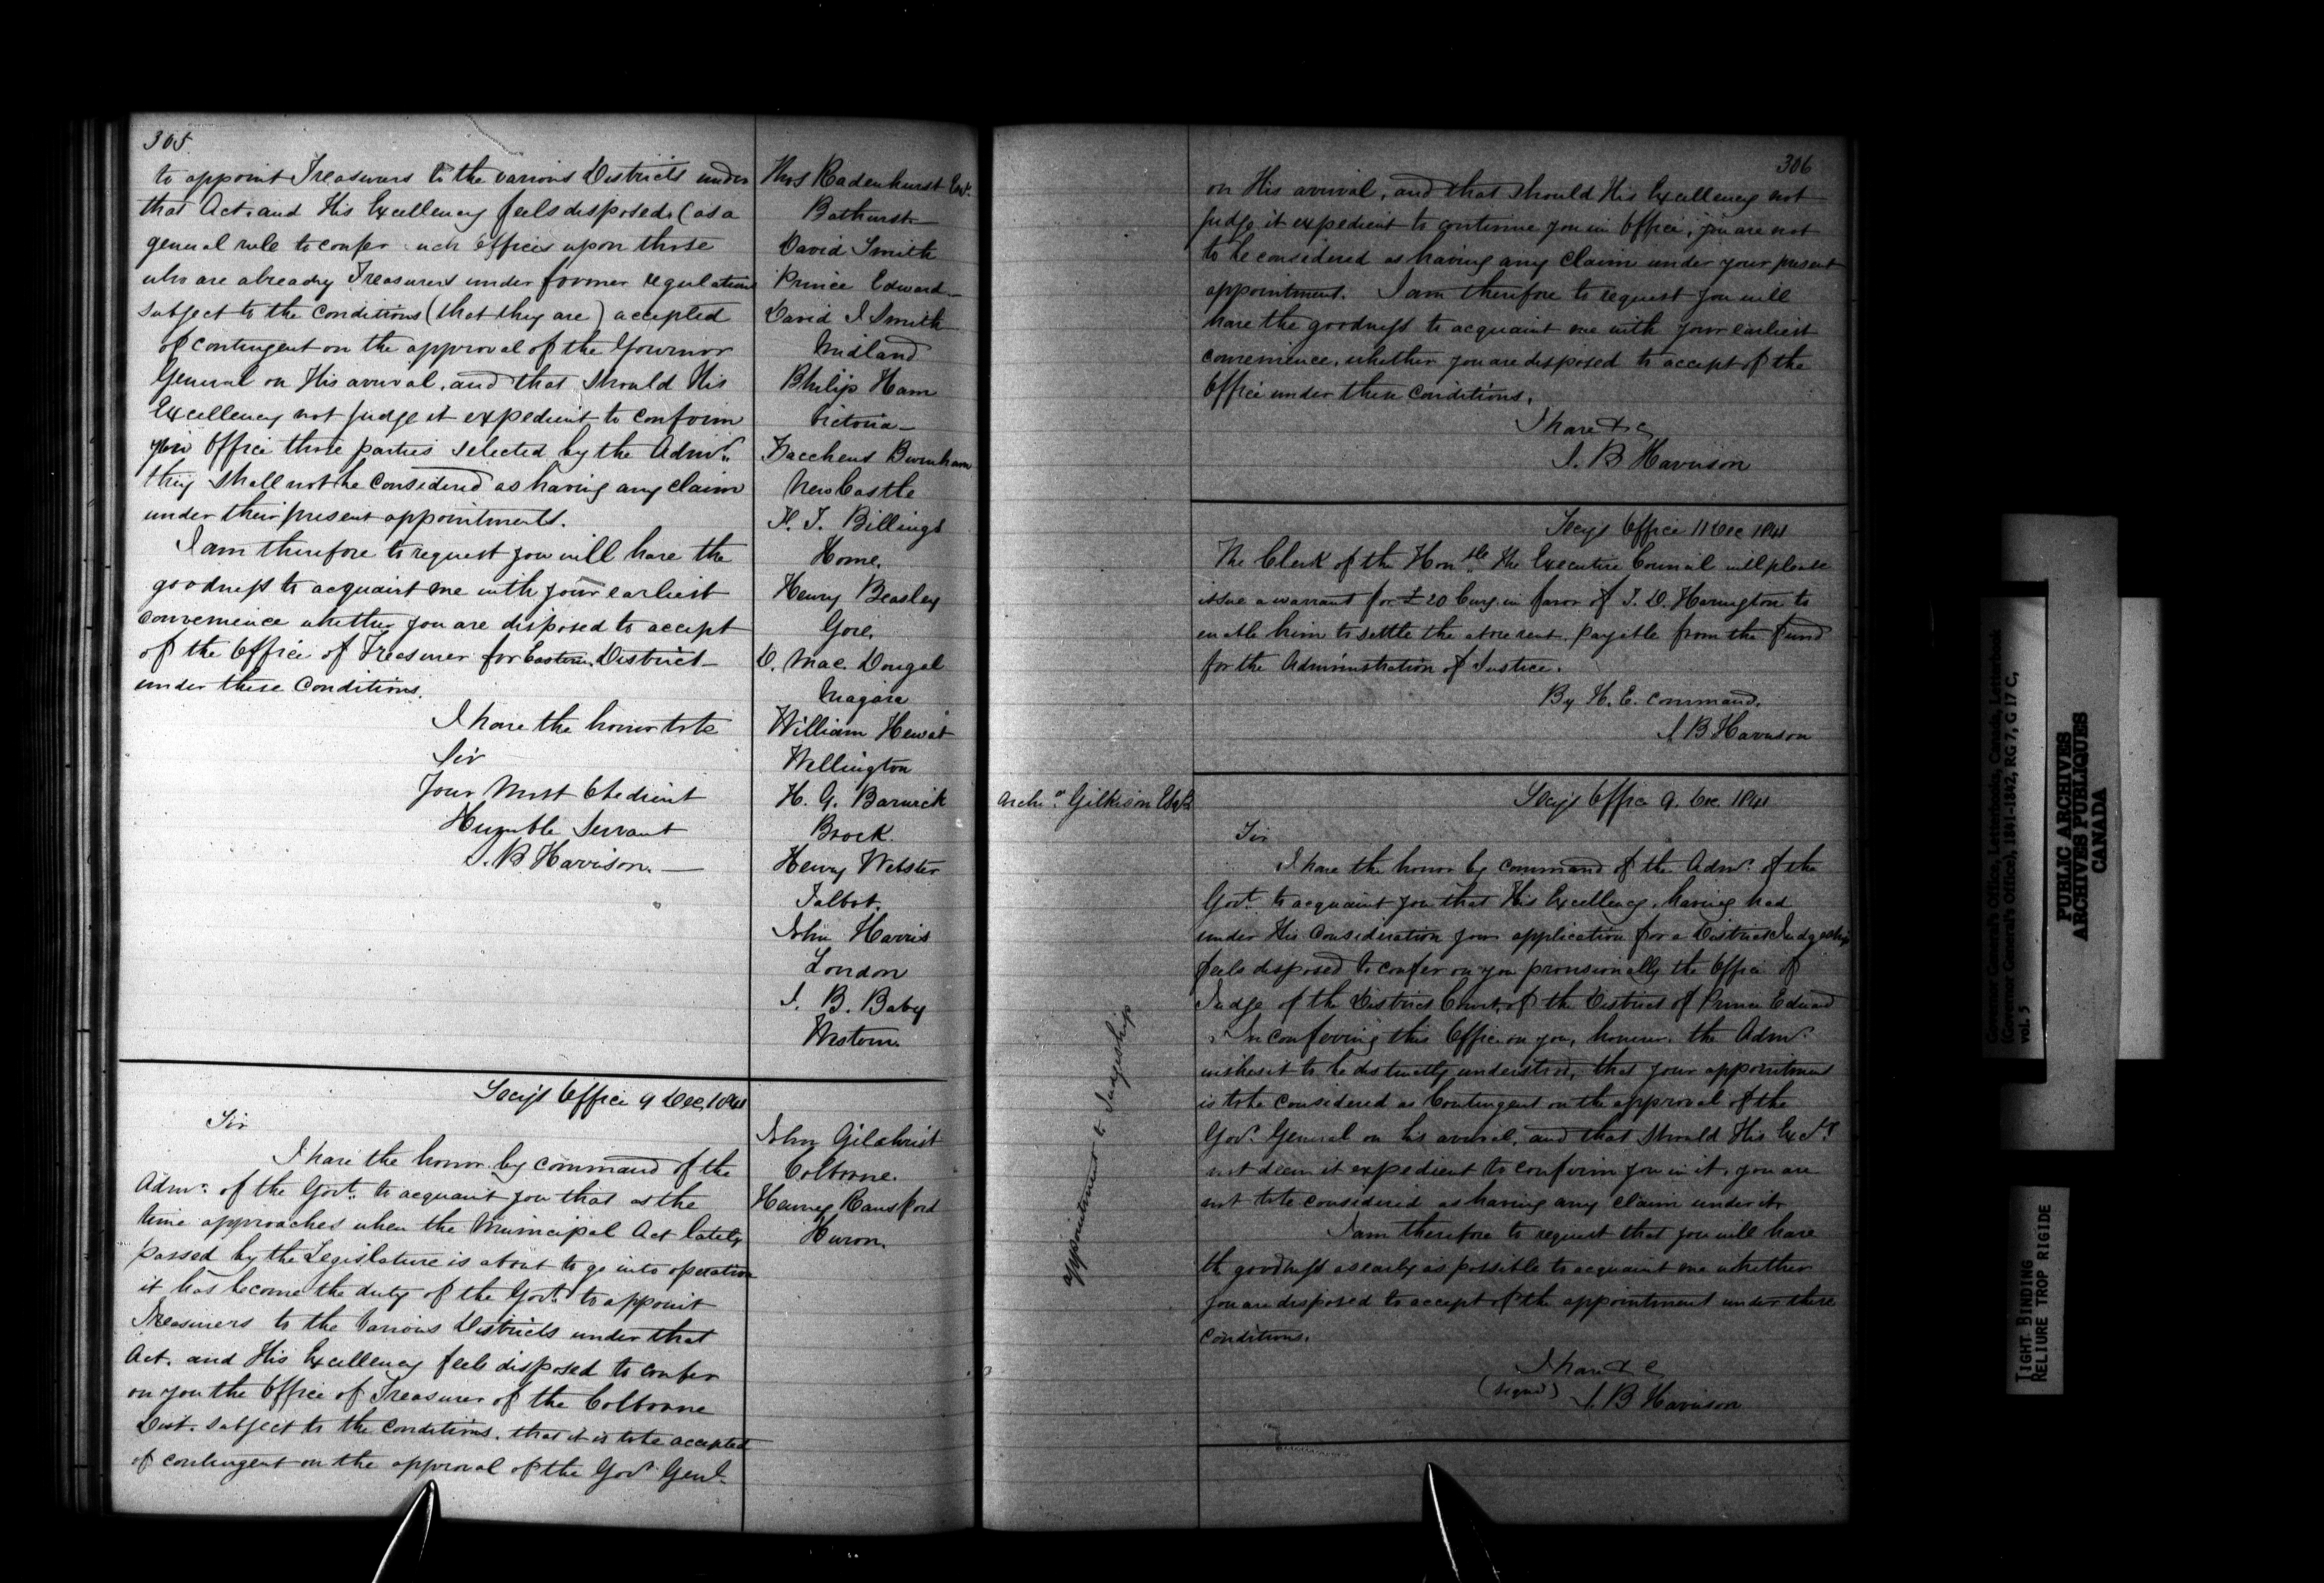 305
to appoint Treasurers to the various Districts under
that Act. and His Excellency feels disposed (as a
general rule to confer such offices upon those
who are already Treasurers under former regulations
subject to the Conditions (that they are) accepted
of contingent on the approval of the Governor
General on His arrival, and that should His
Excellency not judge it expedient to confirm
Office those parties selected by the Admr.
they shall not be considered as having any claim
under their present appointments.
I am therefore to request you will have the
goodness to acquaint me with your earliest
convenience whether you are disposed to accept
of the Office of Treasurer for Eastern District
under these Conditions.
I have the honor to be
Sir
Your Most Obedient
Humble Servant
S. B. Harrison.
Thos Radenhurst Esqr.
Bathurst
David Smith
Prince Edward
David J Smith
Midland
Philip Ham
Victoria
Zaccheus Burnham
New Castle
H. T. Billings
Home.
Henry Beasley
Gore.
D. Mac Dougal
Niagara
William Hewat
Wellington
H. G. Barwick
Brock.
Henry Webster
Talbot.
John Harris
London
J. B. Baby
Western.
Secys Office 9 Dec, 1841
Sir
I have the honor by command of the
Admr. of the Govt. to acquaint you that as the
time approaches when the Municipal Act lately
passed by the Legislature is about to go into operation
it has become the duty of the Govt. to appoint
Treasurers to the Various Districts under that
Act. and His Excellency feels disposed to confer
on you the Office of Treasurer of the Colborne
Dist. subject to the conditions. that it is to be accepted
of contingent on the approval of the Govr Genl.
John Gilchrist
Colborne.
Henry Ransford
Huron.
306
on His arrival, and that should His Excellency not
judge it expedient to continue you in Office, you are not
to be considered as having any claim under your present
appointment. I am therefore to request you will
have the goodness to acquaint me with your earliest
convenience, whether you are disposed to accept of the
Office under these conditions.
I have &c
S. B Harrison
Secys Office 11 Dec 1841
The Clerk of the Honble. the Executive Council will please
issue a warrant for £20 Curcy. in favor of T. D. Harington to
enable him to settle the above rent. payable from the fund
for the Administration of Justice.
By H. E. command.
S B Harrison
Archd. Gilkison Esqr.
appointment to Judgeship
Secys Office 9. Dec. 1841
Sir
I have the honor by command of the Admr. of the
Govt. to acquaint you that His Excellency, having had
under His Consideration your application for a District Judgeship
feels disposed to confer on you provisionally the Office of
Judge of the District Court, of the District of Prince Edward
In conferring this Office on you, however, the Admr.
wishes it to be distinctly understood, that your appointment
is to be considered as Contingent on the approval of the
Govr. General on his arrival, and that should His Excy.
not deem it expedient to confirm you in it, you are
not to be considered as having any claim under it.
I am therefore to request that you will have
the goodness as early as possible to acquaint me whether
you are disposed to accept of the appointment under these
conditions.
I have & c
(signed) S. B Harrison
Governor General's Office, Letterbooks, Canada, Letterbook
(Governor General's Office), 1841-1842, RG 7, G 17 C,
vol. 5
PUBLIC ARCHIVES
ARCHIVES PUBLIQUES
CANADA
TIGHT BINDING
RELIURE TROP RIGIDE